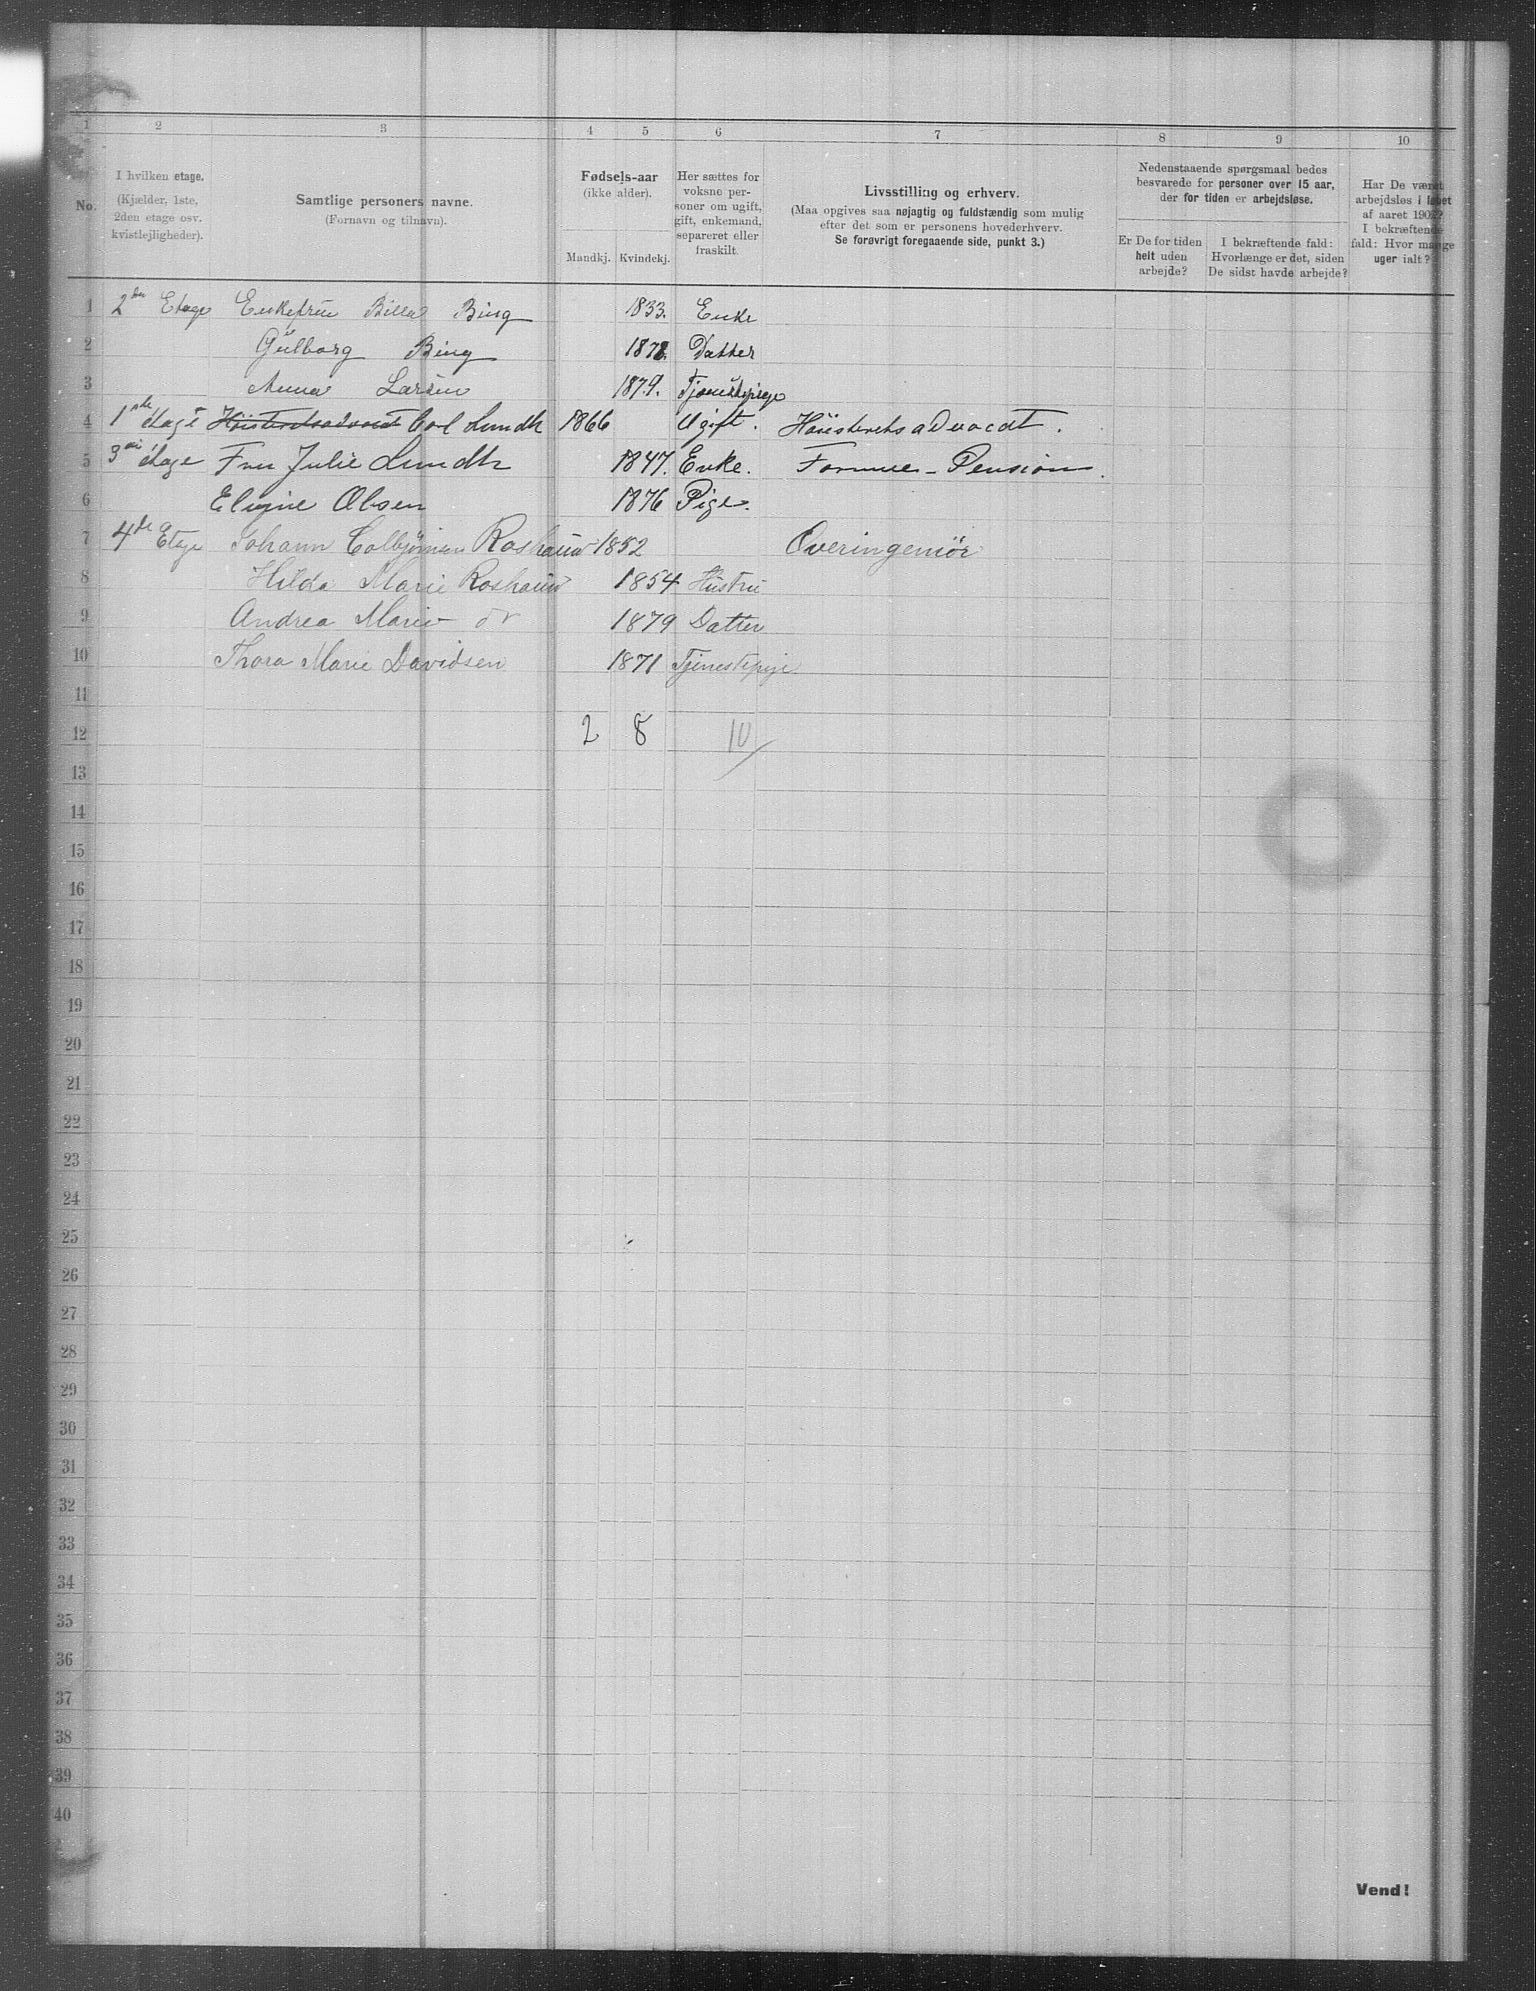 1 2 3 4 5 6 7 8 9 10
No.
I hvilken etage.
(Kjælder, 1ste,
2den etage osv.
kvistlejligheder).
Samtlige personers navne.
(Fornavn og tilnavn).
Fødsels-aar
(ikke alder).
Mandkj. Kvindekj.
Her sættes for
voksne per-
soner om ugift,
gift, enkemand,
separeret eller
fraskilt.
Livsstilling og erhverv.
(Maa opgives saa nøjagtig og fuldstændig som mulig
efter det som er personens hovederhverv.
Se forøvrigt foregaaende side, punkt 3.)
Nedenstaaende spørgsmaal bedes
besvarede for personer over 15 aar,
der for tiden er arbejdsløse.
Er De for tiden
helt uden
arbejde?
I bekræftende fald:
Hvorlænge er det, siden
De sidst havde arbejde?
Har De været
arbejdsløs i løbet
af aaret 1902?
I bekræftende
fald: Hvor mange
uger ialt?
1 2den Etage Enkefrue Billa Bing 1833. Enke
2 Gulborg Bing 1878. Datter
3 Anna Larsen 1879. Tjenestepige
4 1ste Etage Høiesteretsadvocat Carl Lundh 1866 Ugift. Høiesteretsadvocat.
5 3die Etage Fru Julie Lundh 1847. Enke. Formue-Pension.
6 Eligine Olsen 1876 Pige.
7 4de Etage Johann Colbjørnsen Roshauw 1852 Overingeniør
8 Hilda Marie Roshauw 1854 Hustru
9 Andrea Marie do 1879 Datter
10 Thora Marie Davidsen 1871 Tjenestepige
11
12 2 8 10
13
14
15
16
17
18
19
20
21
22
23
24
25
26
27
28
29
30
31
32
33
34
35
36
37
38
39
40
Vend!